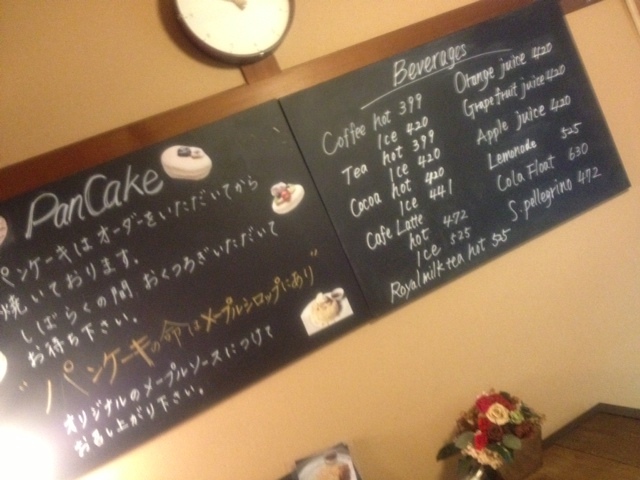 PanCake
パンケーキはオーダーをいただいてから
焼いております。
しばらくの間、おくつろぎいただいて
お待ち下さい。
"パンケーキの命はメープルシロップにあり"
オリジナルのメープルソースにつけて
お召し上がり下さい。
Beverages
Coffee hot 399
Ice 420
Tea hot 399
Ice 420
Cocoa hot 420
Ice 441
Cafe Latte
hot 472
Ice 525
Royal milk tea hot 525
Orange juice 420
Grapefruit juice 420
Apple juice 420
Lemonade 525
Cola Float 630
S.pellegrino 472